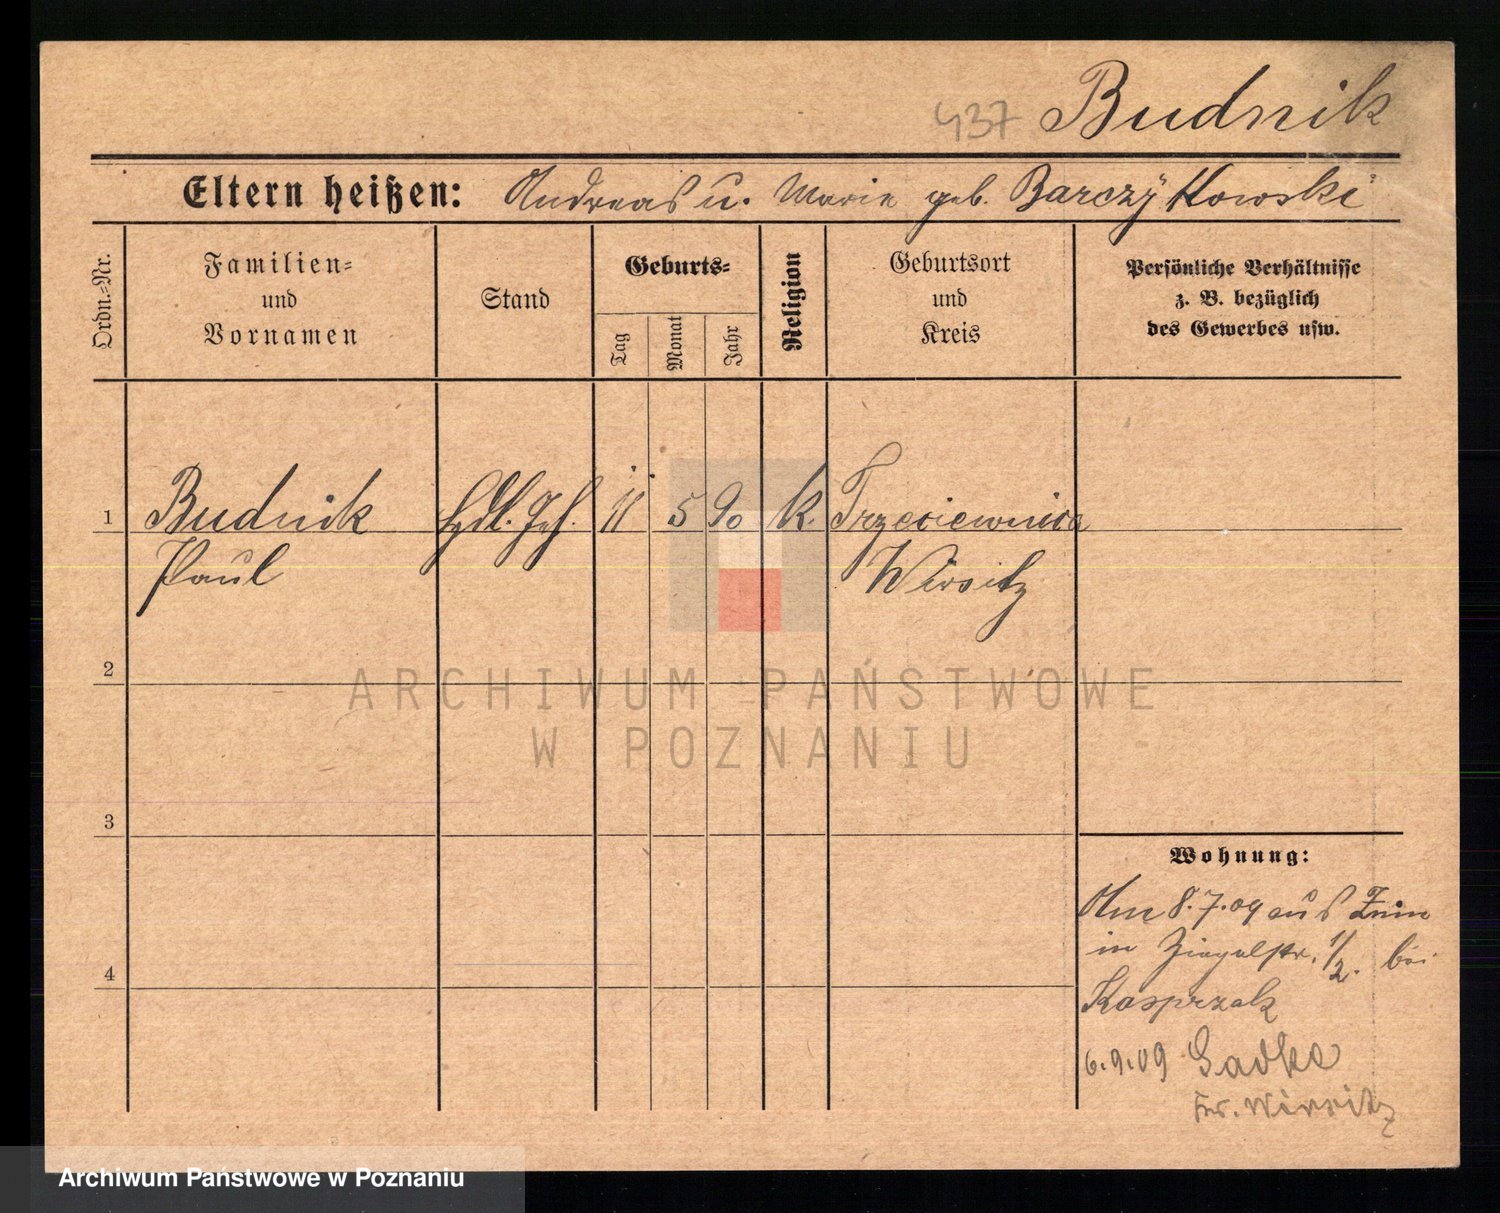 437 Budnik
Eltern heißen: Andreas u. Marie geb. Barczykowski
Ordn.=Nr.
Familien=
und
Vornamen
Stand
Geburts=
Tag
Monat
Jahr
Religion
Geburtsort
und
Kreis
Persönliche Verhältnisse
z. B. bezüglich
des Gewerbes usw.
1 Budnik Hdl. Geh. 11 5 90 k. Trzeciewnica
Paul Wirsitz
2
ARCHIWUM PAŃSTWOWE
W POZNANIU
3
Wohnung:
Am 8.7.09 aus Znin
in Ziegelstr. 1/2. bei
Kasprzak
4
6.9.09 Sadke
Krs. Wirsitz
Archiwum Państwowe w Poznaniu